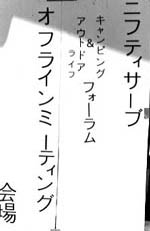 ニフティサーブ
キャンピング
&
アウトドア
ライフ
フォーラム
オフラインミーティング
会場